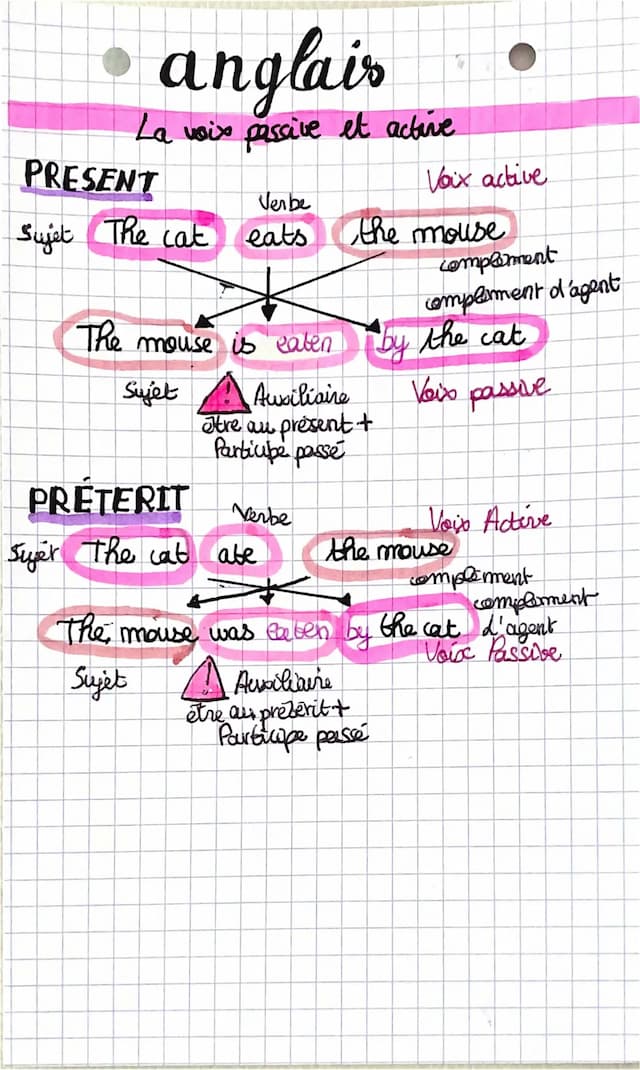 anglais
La voix passive et active
PRESENT
Voix active
Verbe
Sujet The cat eats the mouse
complément
complément d'agent
The mouse is eaten by the cat
Sujet ! Auxiliaire Voix passive
être au présent +
Participe passé
PRÉTERIT
Verbe Voix Active
Sujet The cat ate the mouse
complément
complément
The mouse was eaten by the cat d'agent
Voix Passive
Sujet ! Auxiliaire
être au prétérit +
Participe passé